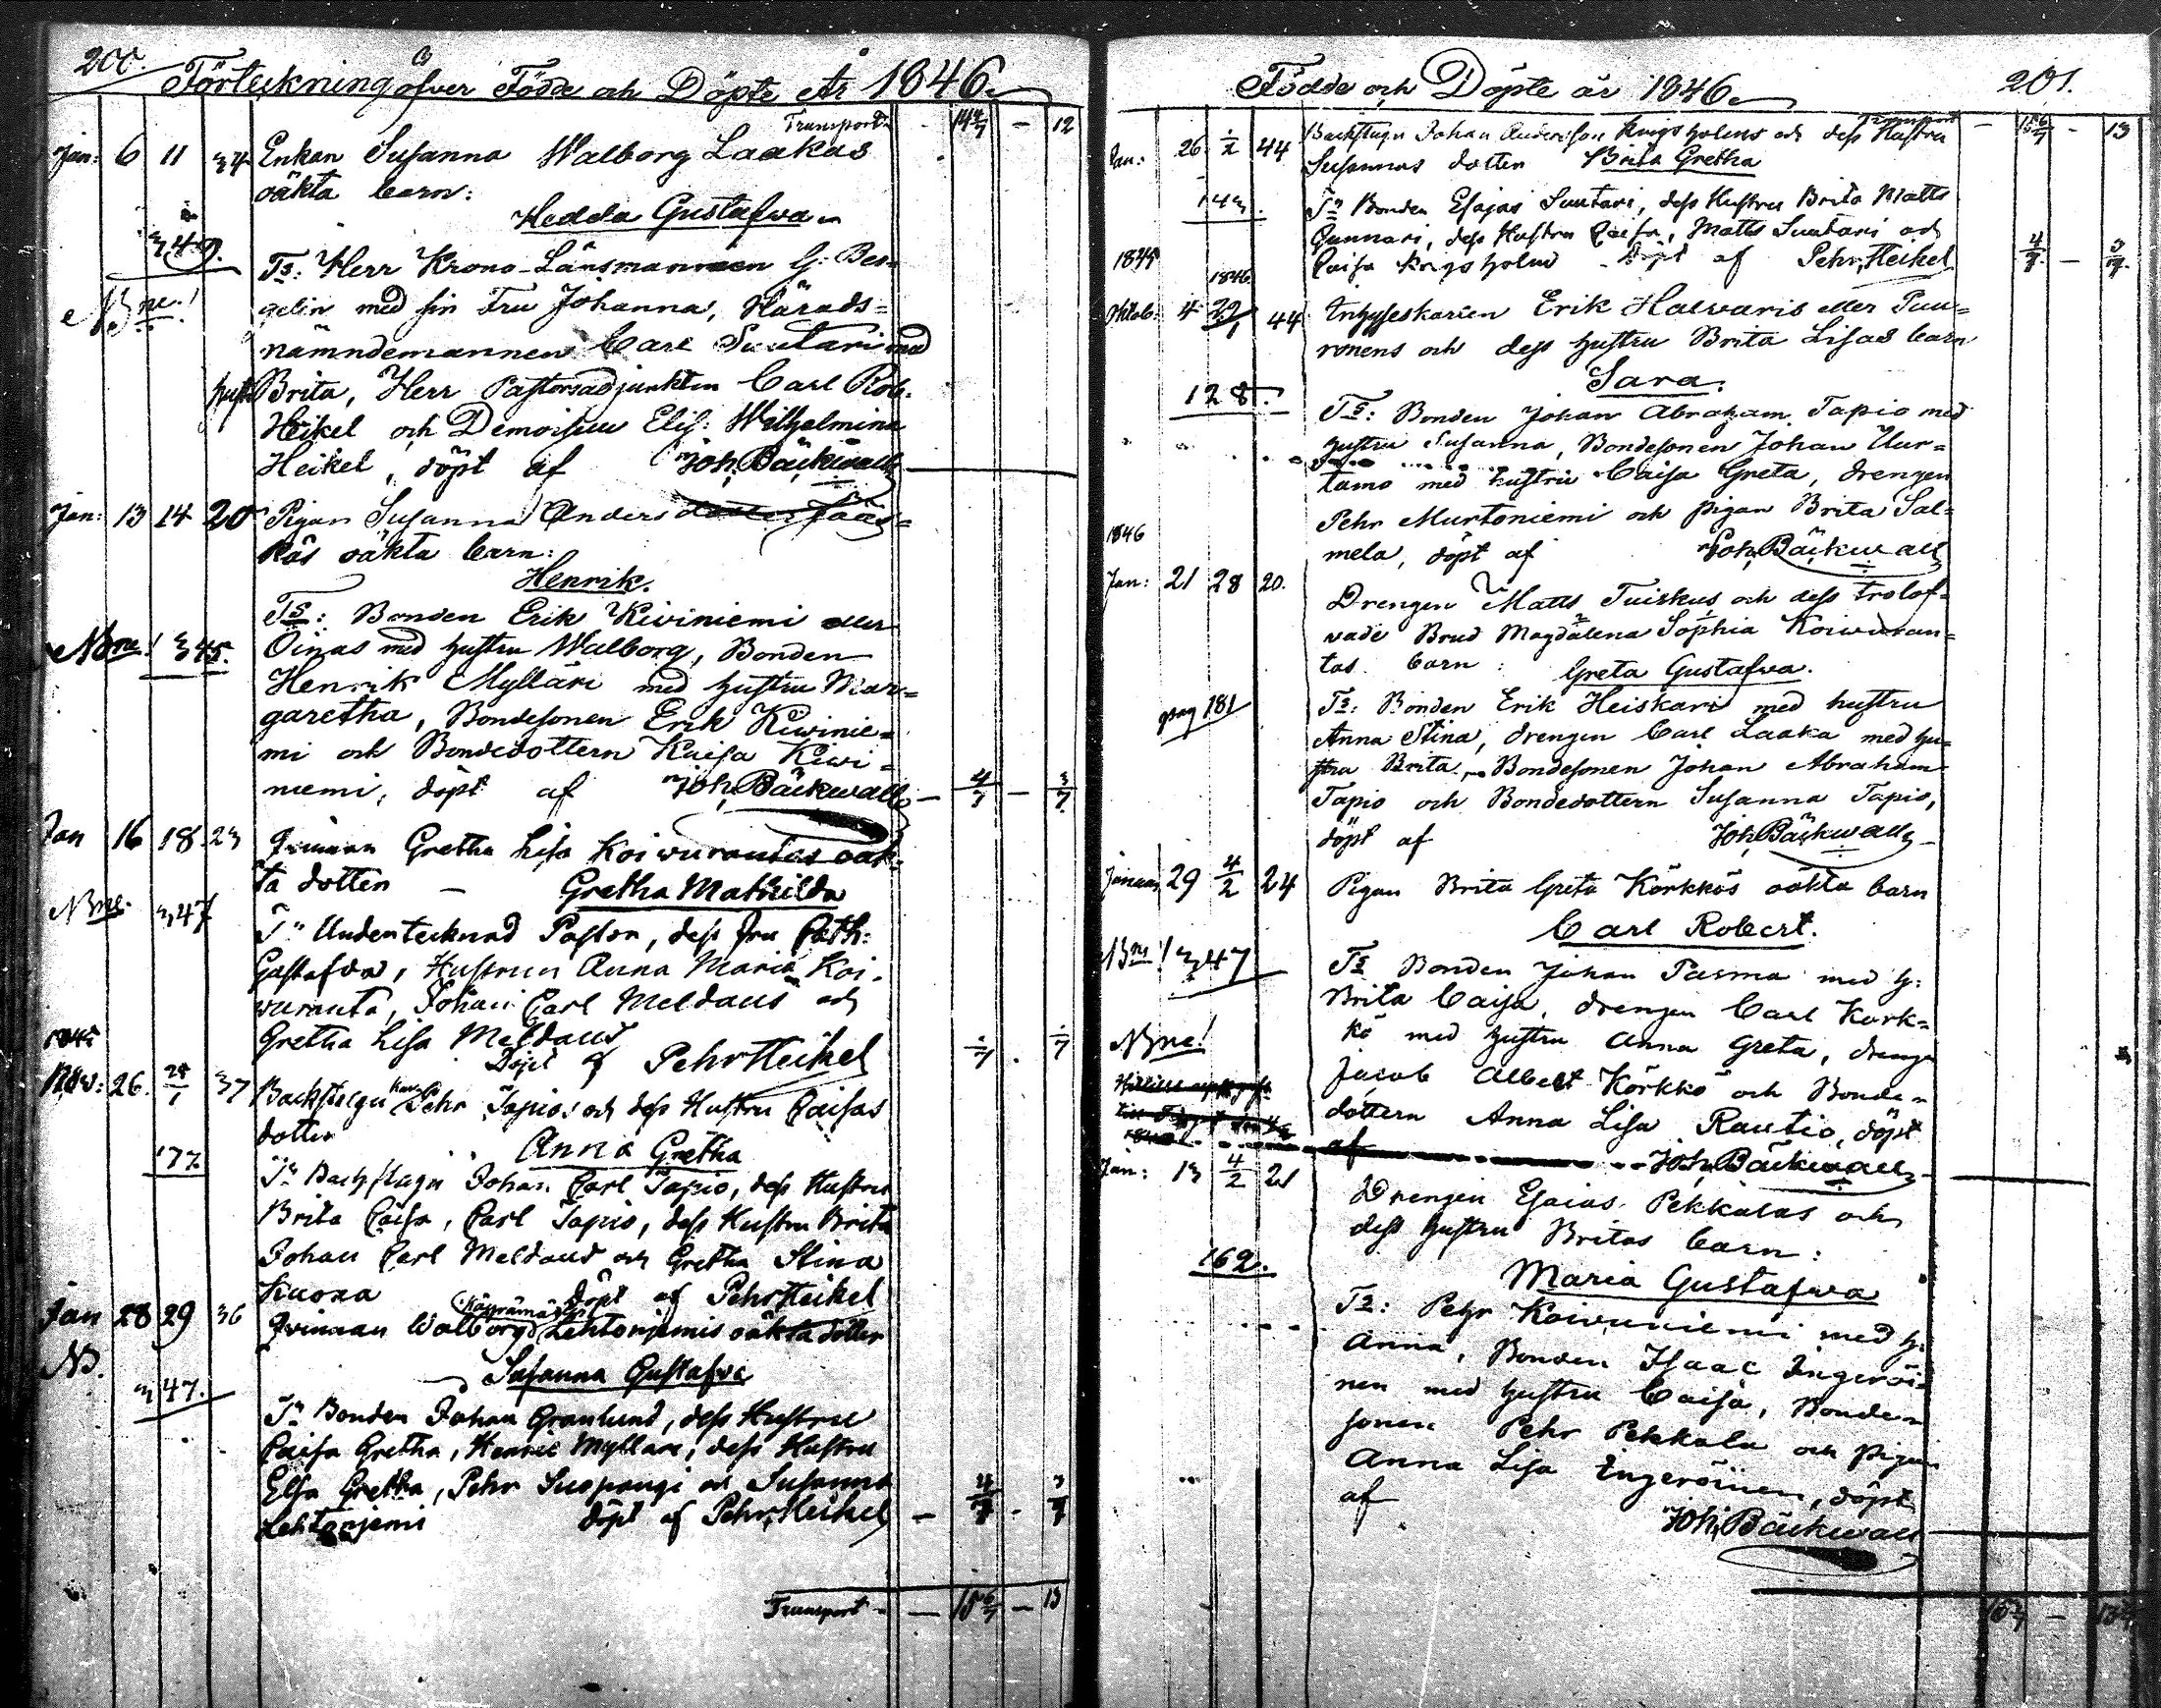 200.
Förteckning öfver Födde och Döpte År 1846.
Transport 14 4/7 — 12
Jan: 6 11 34 Enkan Susanna Walborg Laakas
oäkta barn:
Hedda Gustafwa
Ts: Herr Krono-Länsmannen G: Ber=
NB ne! gelin med sin Fru Johanna, Härads=
nämndemannen Carl Suutari med
hust. Brita, Herr Pastorsadjunkten Carl Rob.
Heikel och Demoiselle Elis: Wilhelmina
Heikel, döpt af Joh. Bäckwall
Jan: 13 14 20 Pigan Susanna Anders dotter Pääs=
kös oäkta barn:
Henrik.
Ts: Bonden Erik Kiviniemi eller
NB ne! 345. Oinas med hustru Walborg, Bonden
Henrik Mylläri med hustru Mar=
garetha, Bondesonen Erik Kiwinie=
mi och Bondedottern Kaisa Kiwi=
niemi, döpt af Joh. Bäckwall — 4/7 — 3/7
Jan 16 18 23 Qvinnan Gretha Lisa Koiwurantas oäk=
ta dotter — Gretha Mathilda
NB ne. 347 Ts Undertecknad Pastor, dess Fru Cath:
Gustafva, Hustrun Anna Maria Koi=
wuranta, Johan Carl Meldaus och
Gretha Lisa Meldaus
Döpt af Pehr Heikel
1845
Nov: 26 28/1 37 Backstugu Pehr Tapios och dess Hustru Caisas
dotter Anna Gretha
177. Ts Backstugu Johan Carl Tapio, dess Hustru
Brita Caisa, Carl Tapio, dess Hustru Brita
Johan Carl Meldaus och Gretha Stina
Kuona döpt af Pehr Heikel
Jan 28 29 36 Qvinnan Walborg Lehtoniemis oäkta dotter
NB. Susanna Gustafva
347. Ts Bonden Johan Granlund, dess Hustru
Caisa Gretha, Henric Myllari, dess Hustru
Elsa Gretha, Pehr Suopangi och Susanna
Lehtoniemi döpt af Pehr Heikel — 4/7 - 3/7
Transport — 15 6/7 — 13
Födde och Döpte år 1846. 201.
Transport — 15 6/7 - 13
Jan: 26 1/2 44 Backstugu Johan Andersson Krigsholms och dess Hustru
Susannas dotter Brita Gretha
143. Ts Bonden Esajas Suutari, dess Hustru Brita Matts
Gunnari, dess Hustru Caisa, Matts Suutari och
Caisa Krigsholm Döpt af Pehr Heikel 4/7 — 3/7
1845 1846.
Oktob: 4 44 Inhyseskarlen Erik Halvaris eller Puu=
ronens och dess hustru Brita Lisas barn
Sara.
128. Ts: Bonden Johan Abraham Tapio med
hustru Susanna, Bondesonen Johan Uur=
tamo med hustru Caisa Greta, drengen
Pehr Murtoniemi och pigan Brita Sal=
mela, döpt af Joh. Bäckwall
1846
Jan: 21 28 20. Drengen Matts Tuiskus och dess trolof=
vade Brud Magdalena Sophia Koiwuran=
tas barn: Greta Gustafwa.
pag 181 Ts: Bonden Erik Heiskari med hustru
Anna Stina, drengen Carl Laaka med hu=
stru Brita, Bondesonen Johan Abraham
Tapio och Bondedottern Susanna Tapio,
döpt af Joh. Bäckwall
Januari 29 4/2 24 Pigan Brita Greta Körkkös oäkta barn
Carl Robert.
NB ne! 347 Ts Bonden Johan Pasma med h:
Brita Caisa, drengen Carl Körk=
NB ne! kö med hustru Anna Greta, drengen
Jacob Albert Körkkö och Bonde=
dottern Anna Lisa Rautio, döpt
af Joh. Bäckwall
Jan: 13 4/2 21 Drengen Esaias Pekkalas och
dess hustru Britas barn:
162. Maria Gustafwa
Ts: Pehr Koivuniemi med h:
Anna, Bonden Isaac Ingeröi=
nen med hustru Caisa, Bonde=
sonen Pehr Pekkala och pigan
Anna Lisa Ingeröinen, döpt
af Joh. Bäckwall